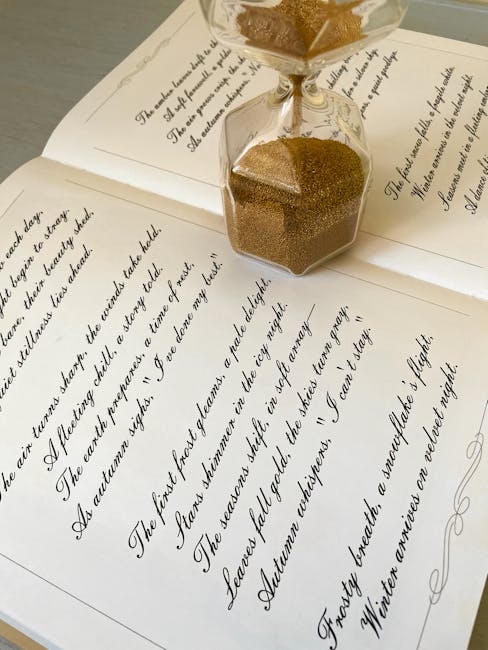 The amber leaves drift to the
A soft farewell, a
The air grows crisp, the
As autumn whispers,
a quiet goodbye.
The first snow falls, a fragile white,
Winter arrives in the velvet night.
Seasons meet in a fleeting
A dance
each day,
begin to stay.
bare, their beauty shed,
stillness lies ahead.
The air turns sharp, the winds take hold,
A fleeting chill, a story told.
The earth prepares, a time of rest,
As autumn sighs, "I've done my best."
The first frost gleams, a pale delight,
Stars shimmer in the icy night.
The seasons shift, in soft array—
Leaves fall gold, the skies turn gray,
Autumn whispers, "I can't stay."
Frosty breath, a snowflake's flight,
Winter arrives on velvet night.